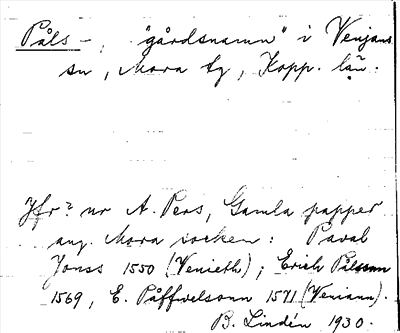 Påls-, "gårdsnamn" i Venjans
sn, Mora tg, Kopp. län.
Jfr? ur A. Pers, Gamla papper
ang. Mora socken: Paval
Jonss 1550 (Venieth); Erich Pålsson
1569, E. Påffwelsonn 1571 (Veniann).
B. Lindén 1930.